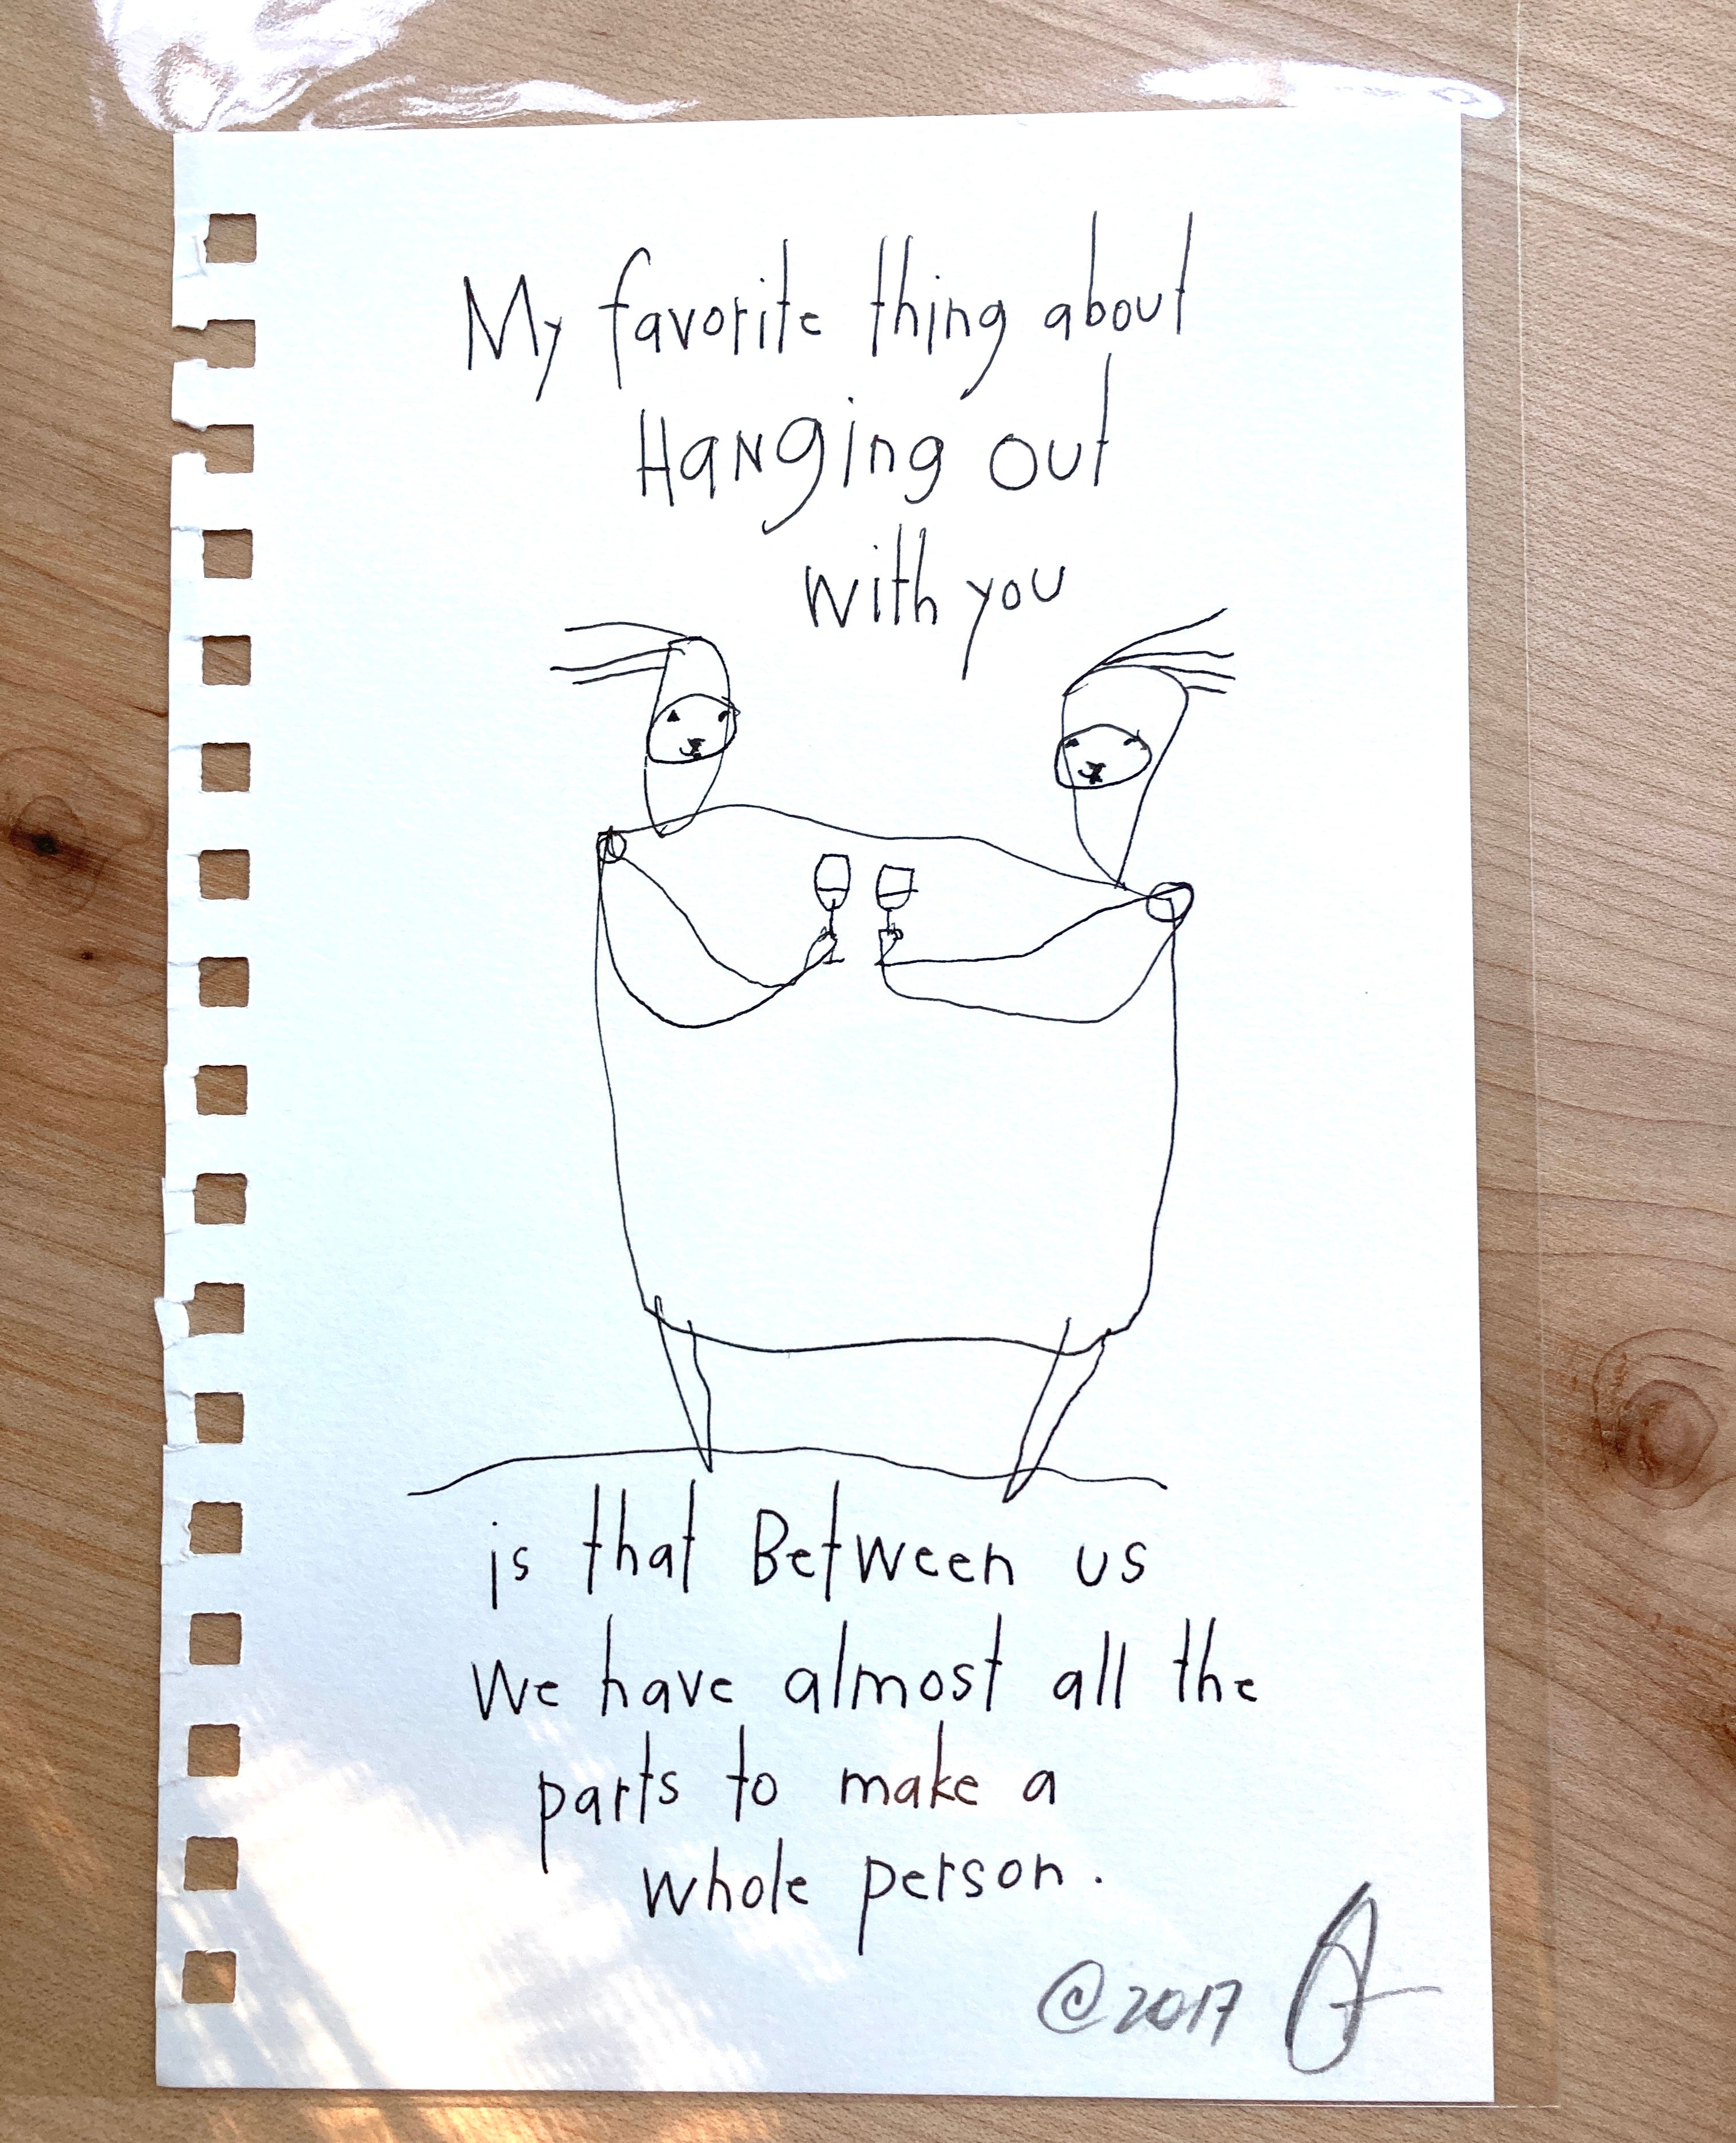 My favorite thing about
Hanging out
with you
is that Between us
we have almost all the
parts to make a
whole person.
©2017